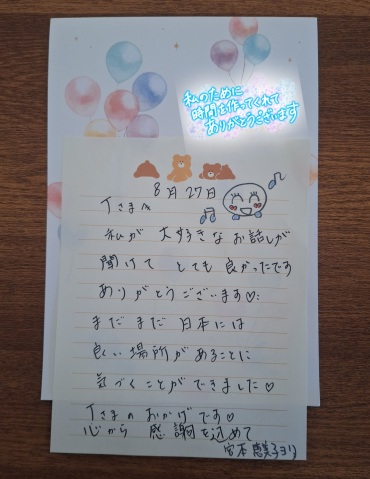 私のために
時間を作ってくれて
ありがとうございます
8月27日
Tさまへ
私が 大好きな お話しが
聞けて とても 良かったです
ありがとうございます♡
まだまだ 日本には
良い 場所が あることに
気づく ことが できました♡
Tさまの おかげです♡
心から 感謝を込めて
宮本 恵美子より